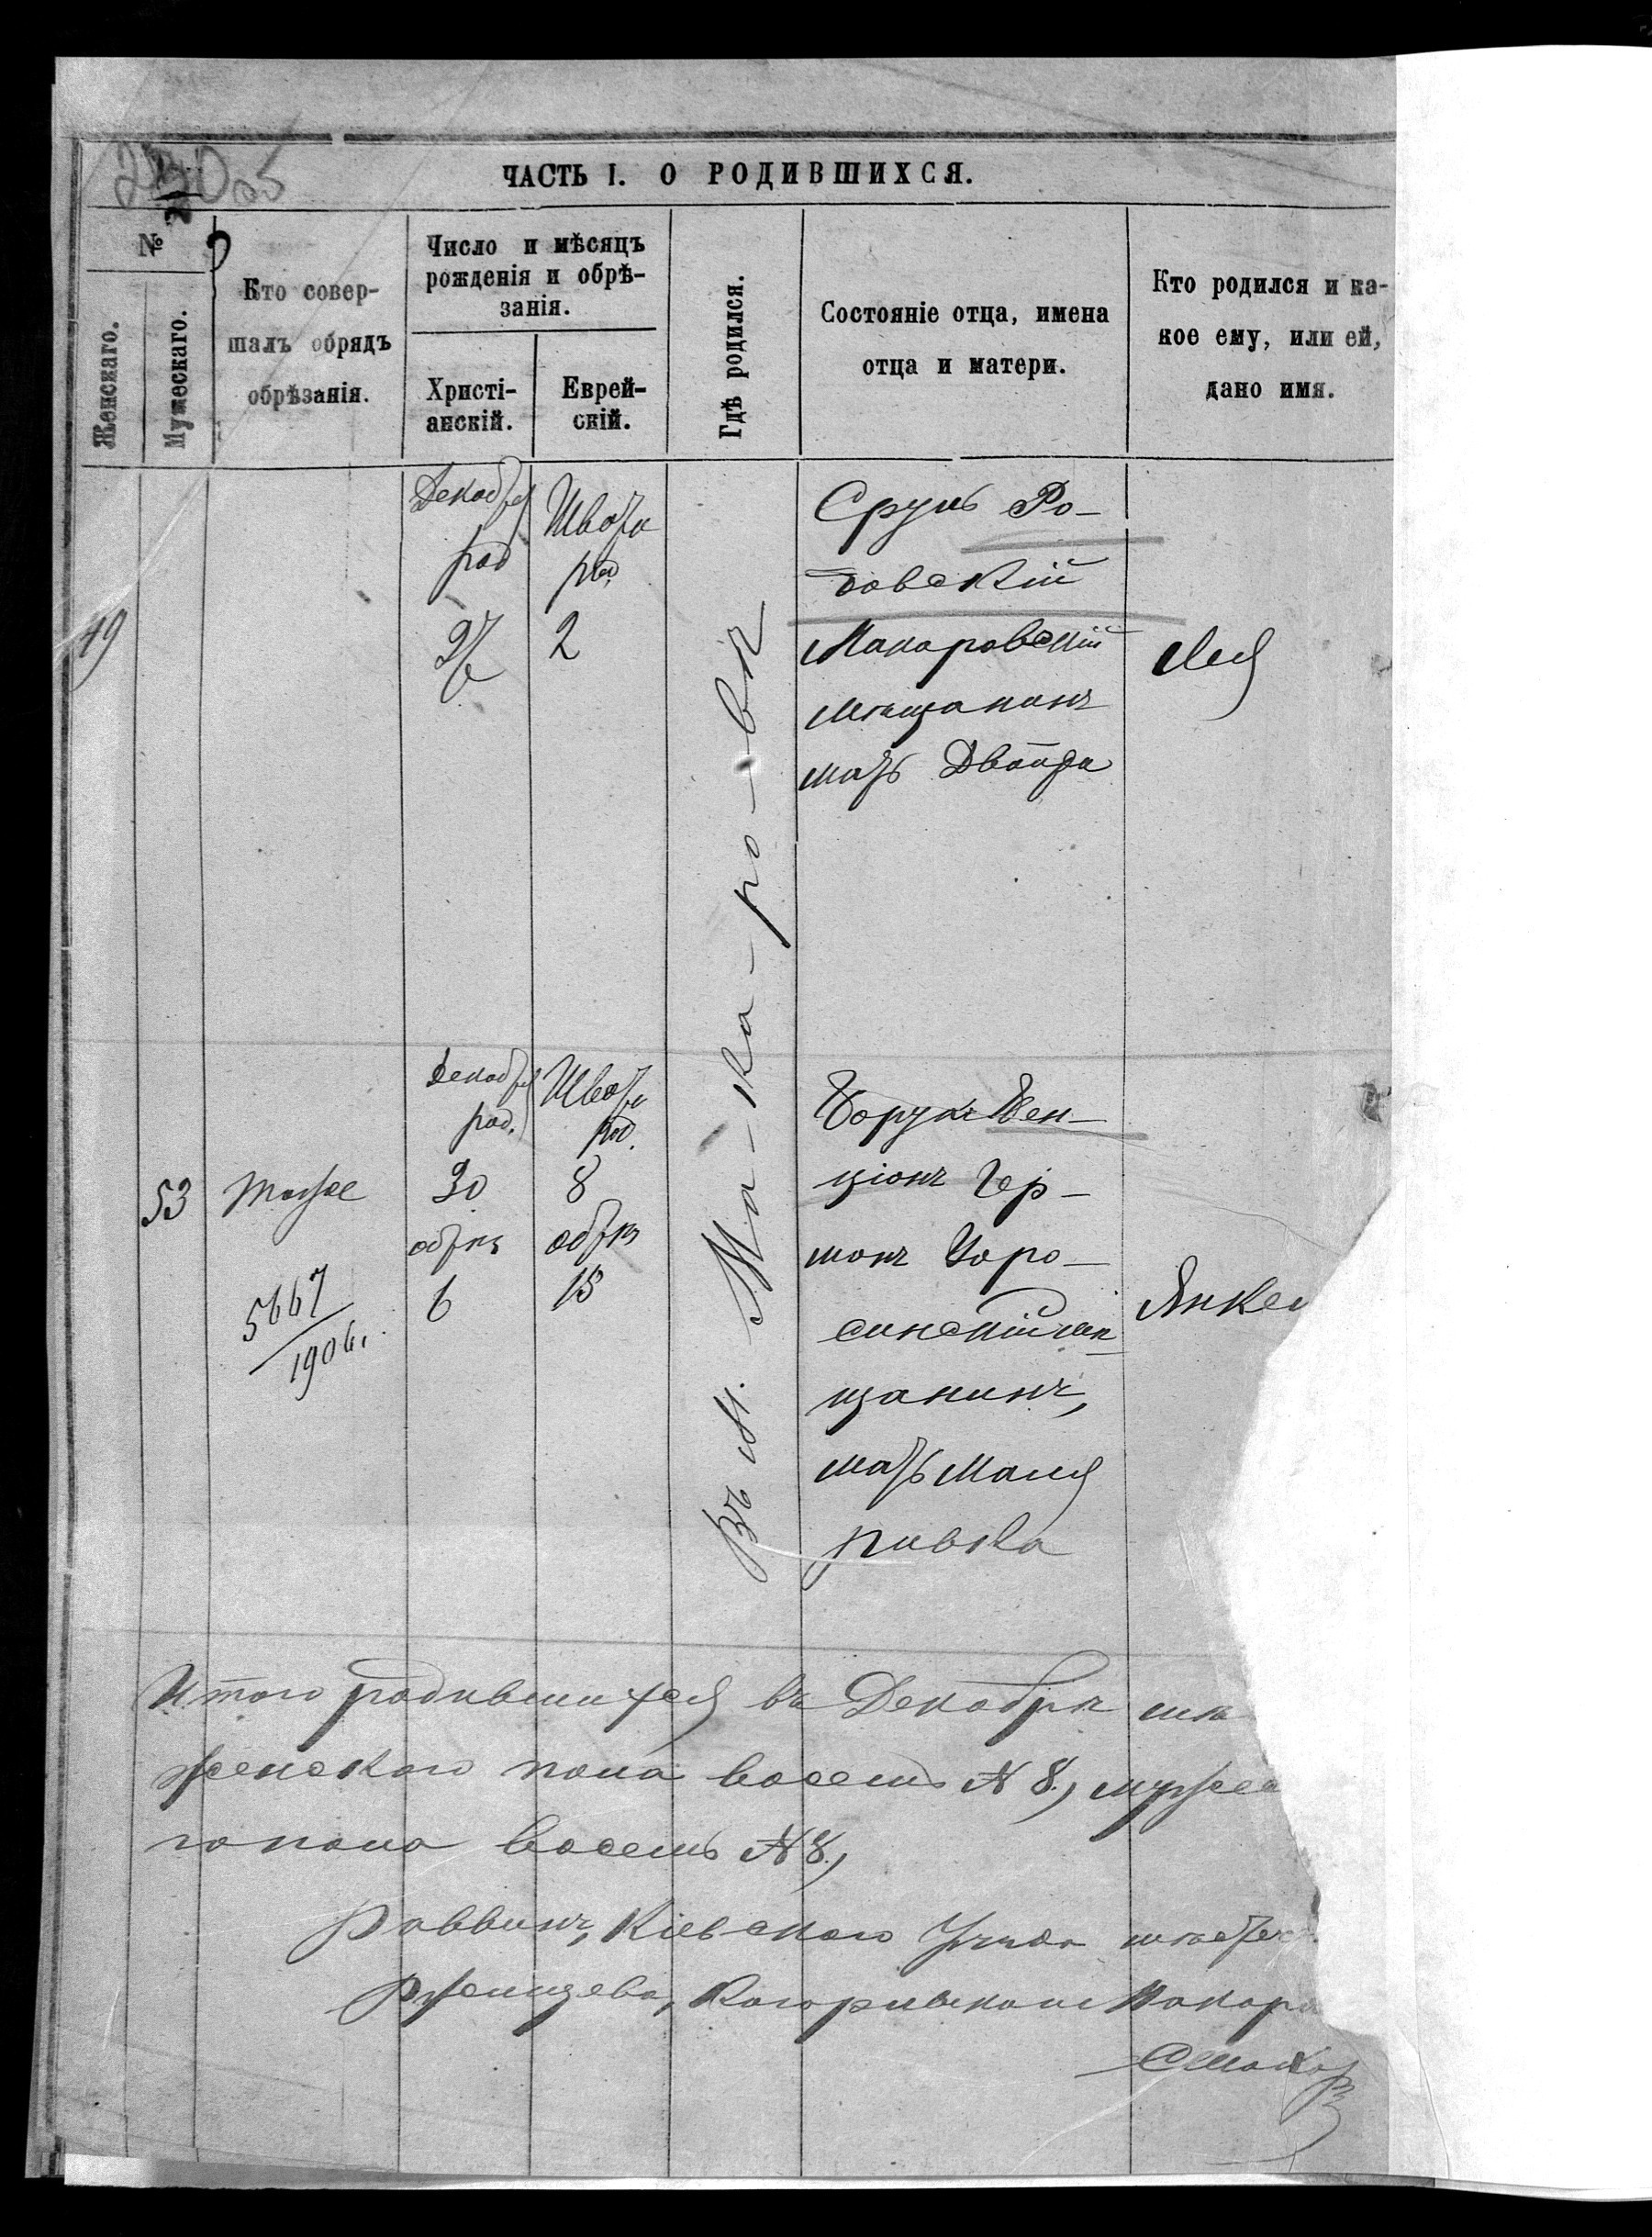 230 об
ЧАСТЬ I. О РОДИВШИХСЯ.
№
Женскаго.
Мужескаго.
Кто совер-
шалъ обрядъ
обрѣзанія.
Число и мѣсяцъ
рожденія и обрѣ-
занія.
Христі-
анскій.
Еврей-
скій.
Гдѣ родился.
Состояніе отца, имена
отца и матери.
Кто родился и ка-
кое ему, или ей,
дано имя.
49
Декабря
род
27
Швата
род.
2
Въ м. Ма-ка-ро-вѣ
Сруль Ро-
товскій
Макаровскій
мѣщанинъ
мать Двойра
Лея
53
тоже
5667
1906 г.
Декабря
род.
30
обрѣз
6
Швата
род.
8
обрѣз
15
Борухъ Бен-
ціонъ Гер-
шонъ
мѣ-
щанинъ,
мать Маля
Ривка
Янкел
Итого родившихся въ Декабрѣ мѣ
женскаго пола восемь № 8, мужес
го пола восемь № 8,
Раввинъ, Кіевскаго Уѣзда мѣстеч.
Ржищева, Кагарлыка и Макаро